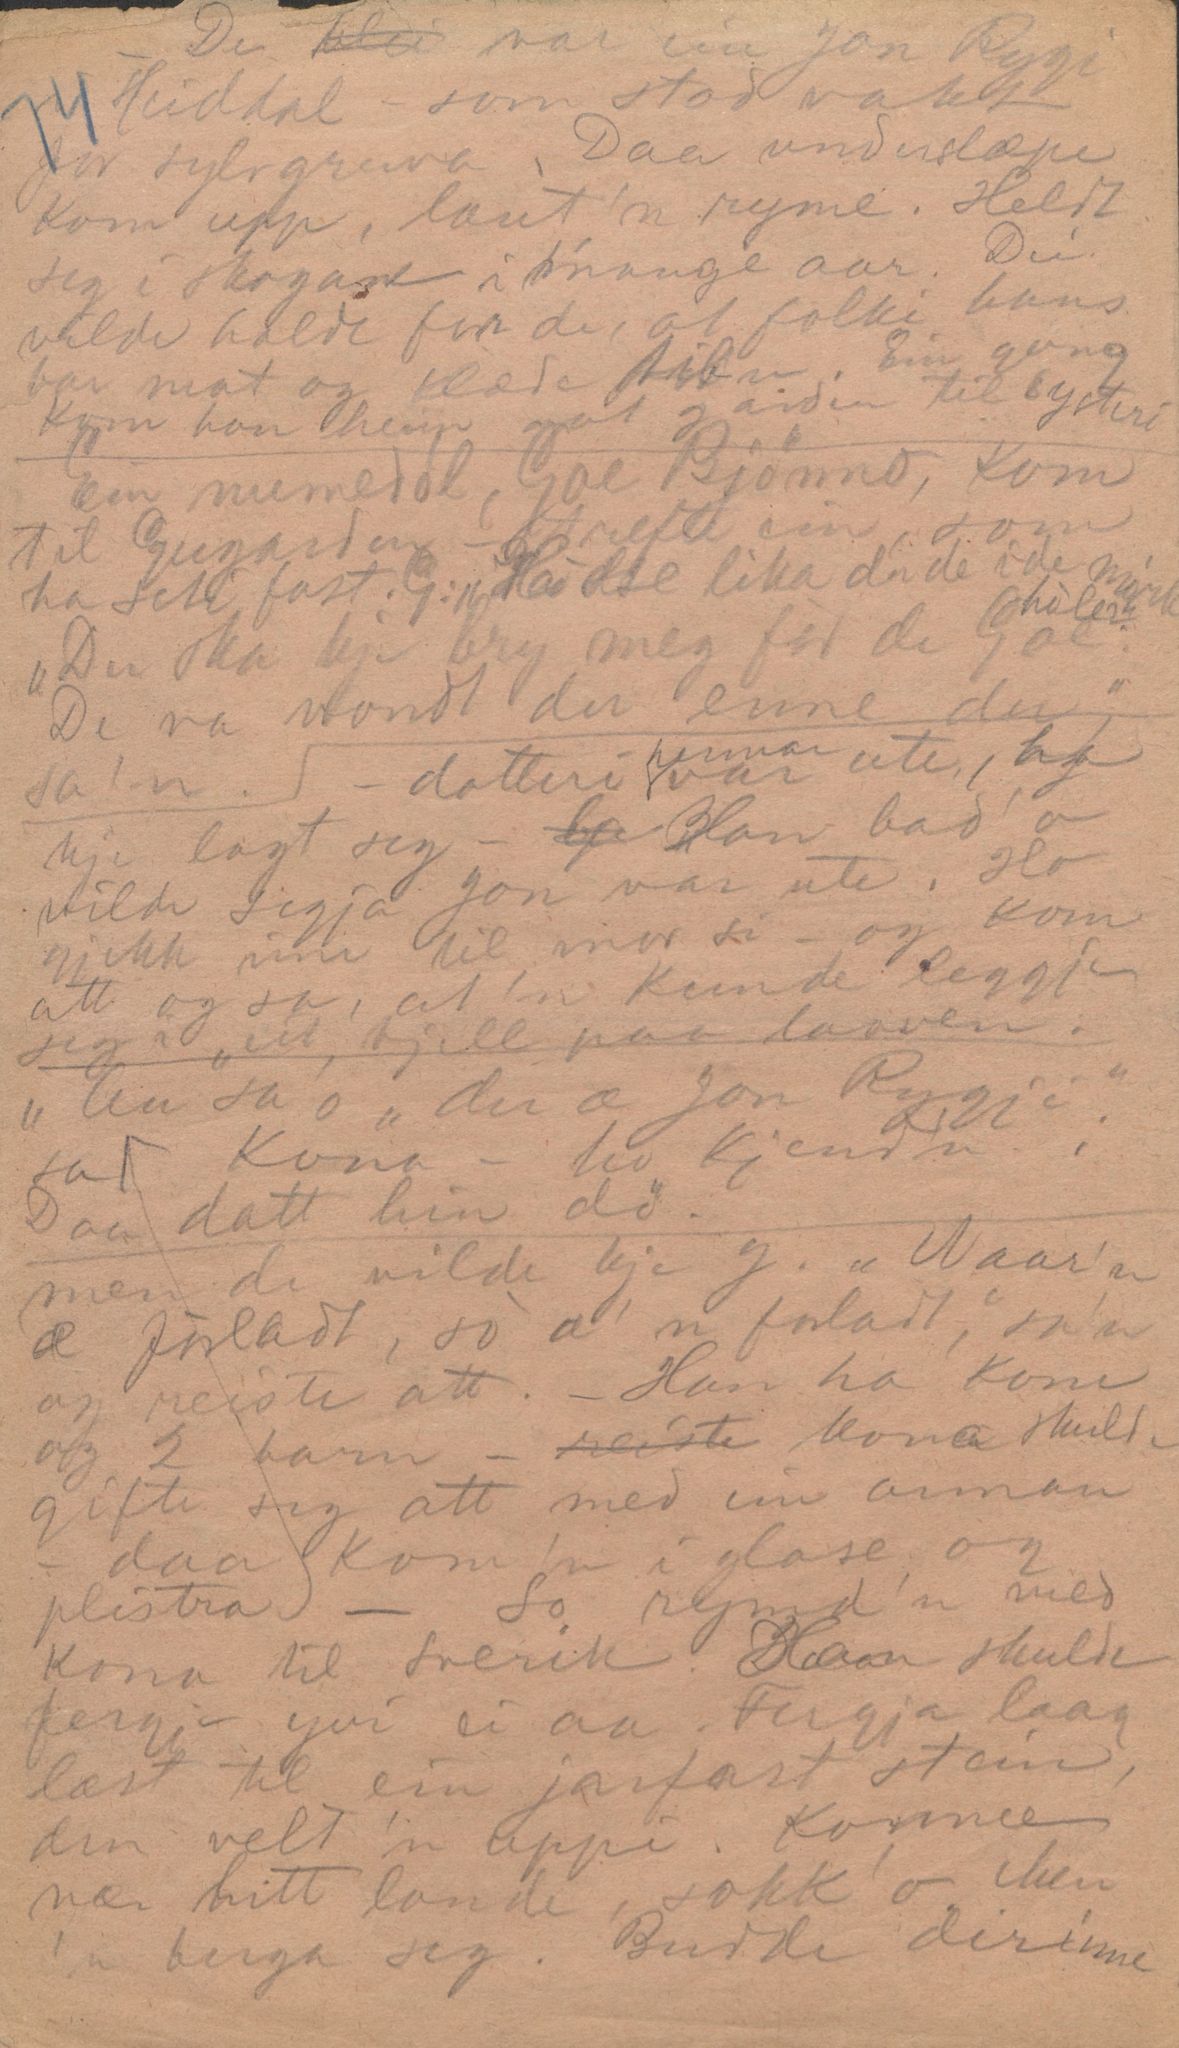 – De blei var ein Jon Rygi
74 Hiddal – som stod vakt
for sylvgruva, Daa underslæpe
kom upp, laut 'n ryme. Heldt
seg i skogane i mange aar. Dei
vilde halde for de, at folki hans
bar mat og klæde til 'n. Ein gong
kom han heim mot garden til systeri
Ein numedøl, Gøe Bjönnö, kom
til Gugarden – trefte ein, som
ha seti fast. G: "Ha dse lika der de i de mörk
hölen?"
"Du ska kje bry meg för de Goe.
De va vondt der enne du",
sa 'n. – dotteri hennar var ute, ha
kje lagt seg – Han bad 'o
vilde segja Jon var ute. Ho
gjekk inn til mor si – og kom
att og sa, at 'n kunde leggje
seg i eit kjell paa laaven.
"Uu sa 'o "der æ Jon Rygji".
sa kona – ho kjend 'n.
Daa datt hin dö.
men de vilde kje G. "Naar 'n
æ forladt, so æ 'n forladt," sa 'n
og reiste att. – Han ha kone
og 2 barn – reiste kona skulde
gifte seg att med ein annan
– daa kom 'n i glase og
plistra – So rymd 'n med
kona til Sverik. Han skulde
fergje yvi ei aa. Fergja laag
læst til ein jorfast stein,
den velt 'n uppi. Komne
nær hitt lande, sokk 'o men
'n berga seg. Budde derinne